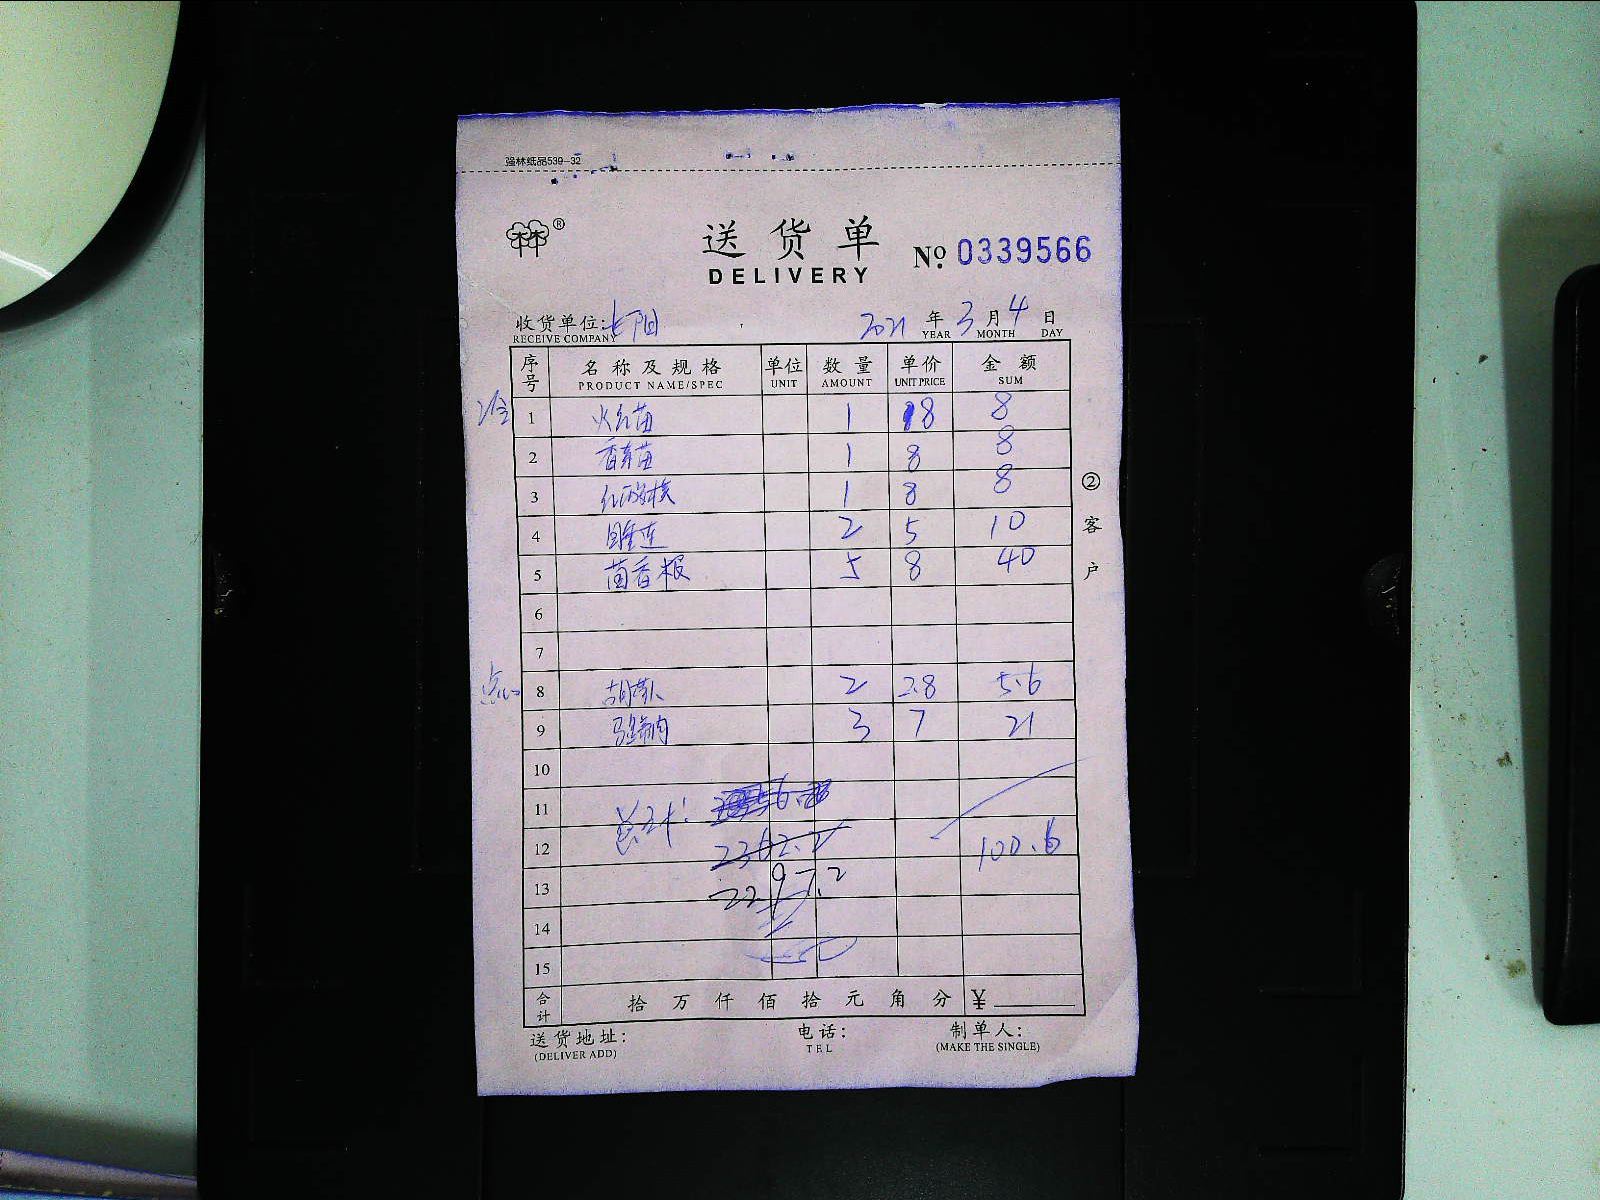 强林纸品539-32
送货单
DELIVERY
No. 0339566
收货单位: 七下田
RECEIVE COMPANY
2021 年 3 月 4 日
YEAR MONTH DAY
序号 名称及规格 单位 数量 单价 金额
PRODUCT NAME/SPEC UNIT AMOUNT UNIT PRICE SUM
冷 1 火红苗 1 8 8
2 香菜苗 1 8 8
3 1 8 8
4 2 5 10
5 茴香根 5 8 40
6
7
点心 8 胡萝卜 2 2.8 5.6
9 3 7 21
10
11 总计:
12 2362.2 100.6
13 2297.2
14
15
合计 拾 万 仟 佰 拾 元 角 分 ¥
送货地址: 电话: 制单人:
(DELIVER ADD) TEL (MAKE THE SINGLE)
②客户